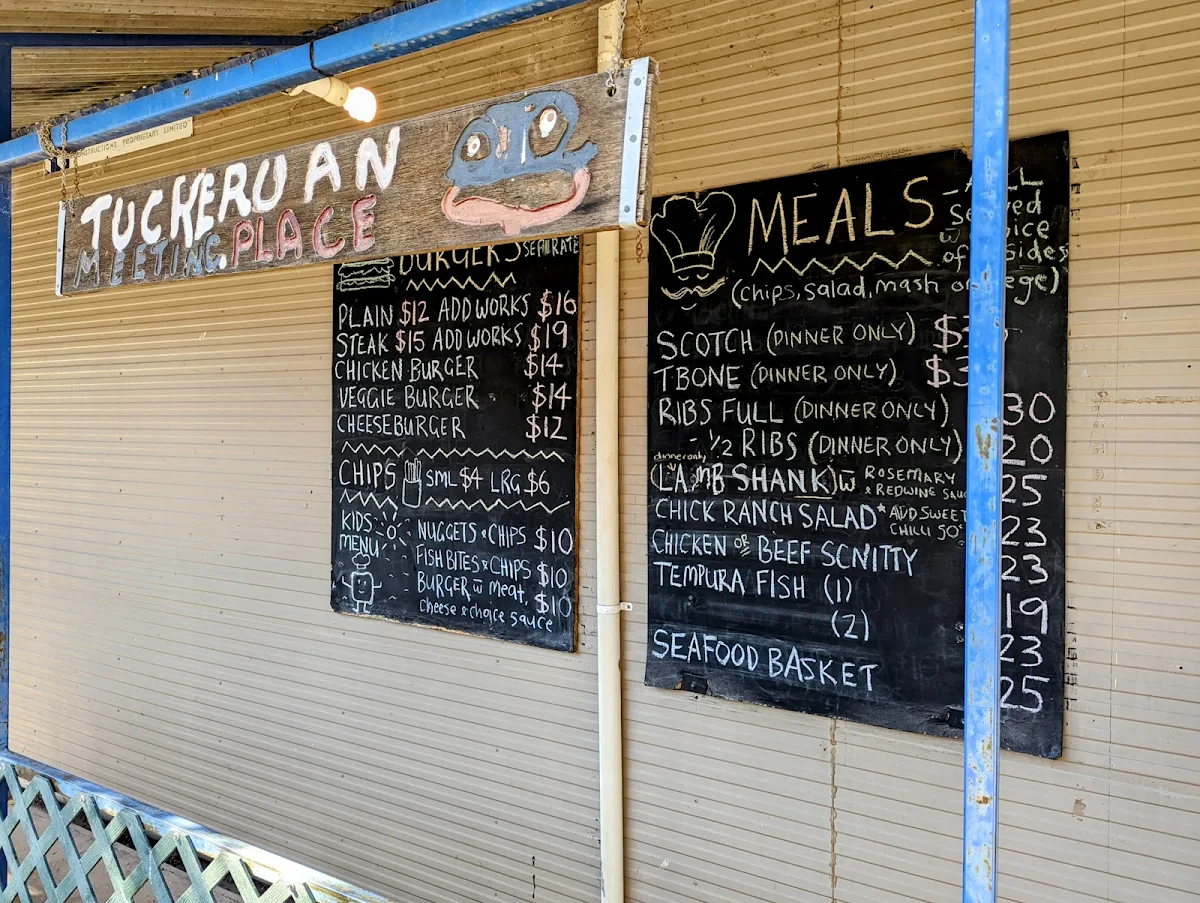 NSTRUCTIONS PROPRIETARY LIMITED
TUCKERUAN
MEETING PLACE
BURGERS SEPARATE
PLAIN $12 ADD WORKS $16
STEAK $15 ADD WORKS $19
CHICKEN BURGER $14
VEGGIE BURGER $14
CHEESEBURGER $12
CHIPS SML $4 LRG $6
KIDS MENU
NUGGETS & CHIPS $10
FISH BITES & CHIPS $10
BURGER w̄ meat, $10
cheese & choice sauce
MEALS - ALL
served
w̄
of sides
(chips, salad, mash or vege)
SCOTCH (DINNER ONLY)
TBONE (DINNER ONLY)
RIBS FULL (DINNER ONLY) 30
- ½ RIBS (DINNER ONLY) 20
dinner only
(LAMB SHANK) w̄ ROSEMARY 25
& REDWINE
CHICK RANCH SALAD *ADD SWEET 23
CHILLI 50c
CHICKEN OR BEEF SCNITTY 23
TEMPURA FISH (1) 19
(2) 23
SEAFOOD BASKET 25